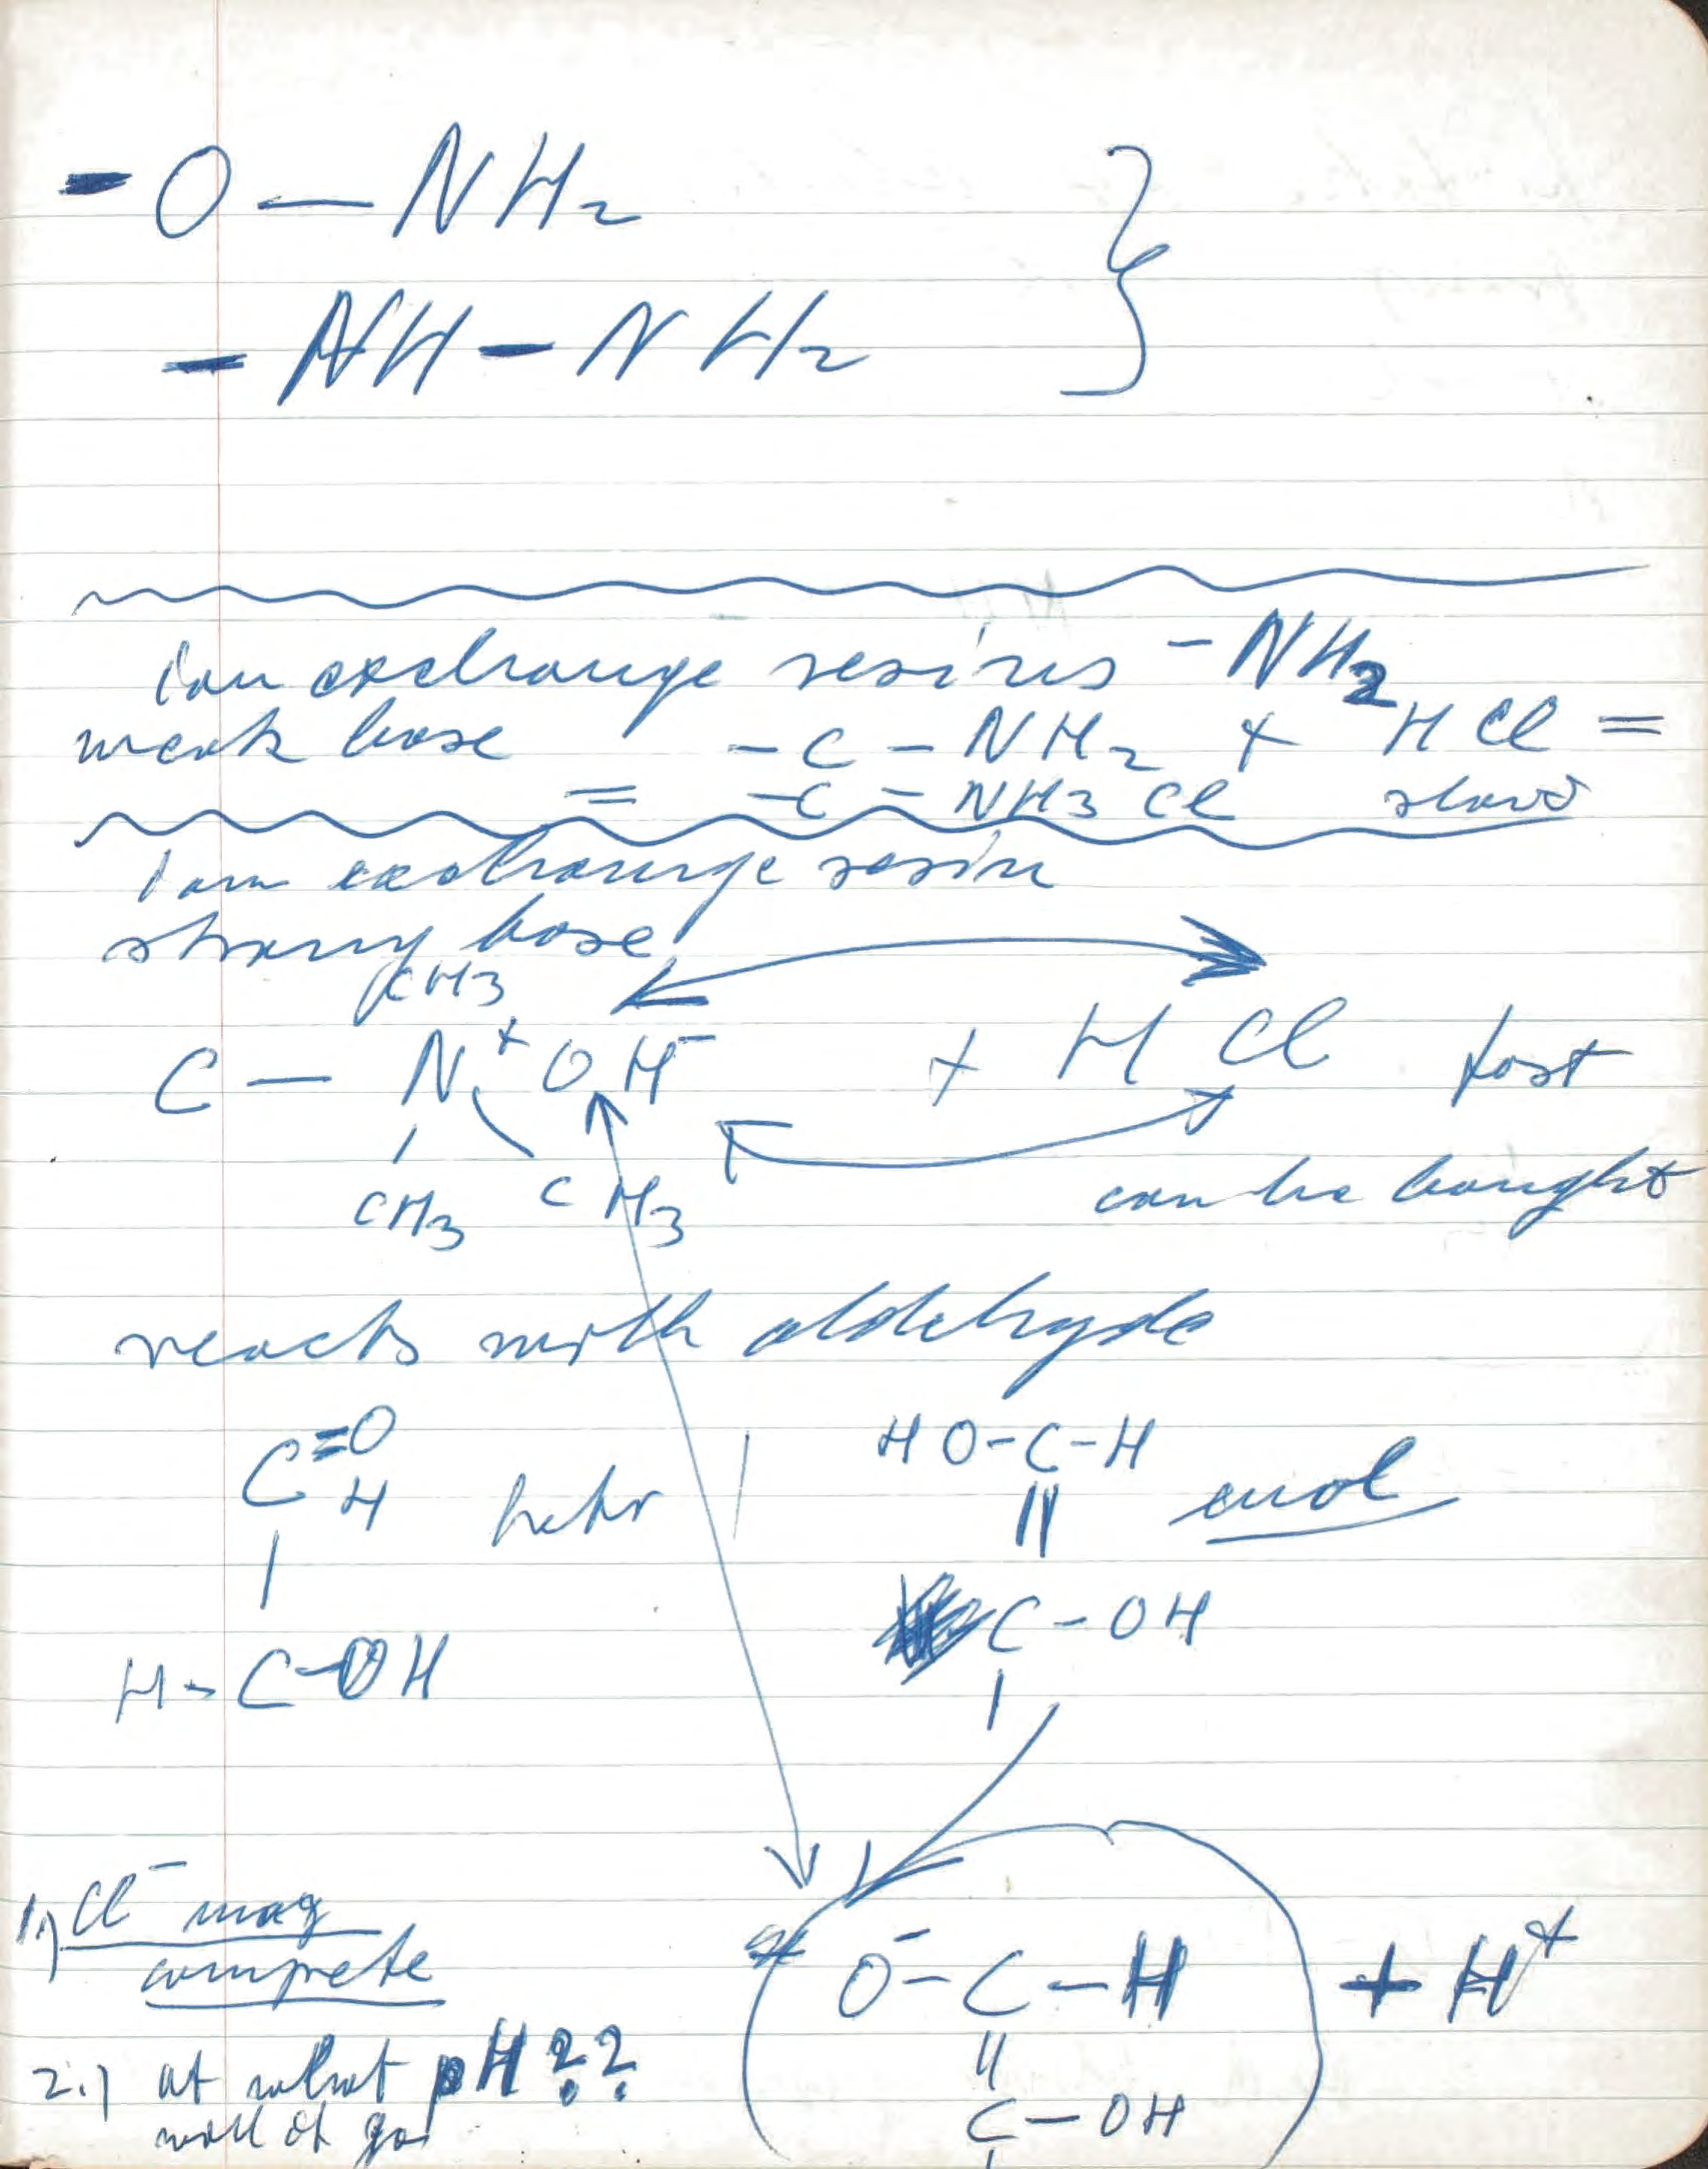 - O — NH2
- NH - NH2 }
Ion exchange resins - NH2
weak base - C - NH2 + HCl =
= - C - NH3 Cl slow
Ion exchange resin
strong base
CH3
C — N+ OH- + H Cl fast
CH3 CH3
can be bought
reacts with aldehyde
C=O HO-C-H
H keto enol
H-C-OH C-OH
1.) Cl- may
compete
O- - C - H + H+
2.) at what pH??
will it go
C - OH